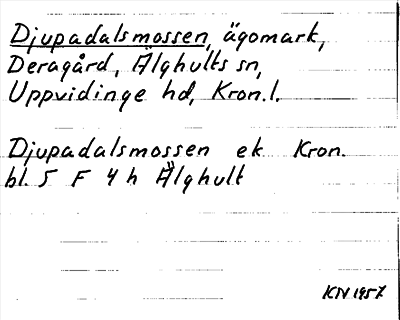 Djupadalsmossen, ägomark,
Deragård, Älghults sn,
Uppvidinge hd, Kron.l.
Djupadalsmossen ek Kron.
bl. 5 F 4 h Älghult
KN 1957